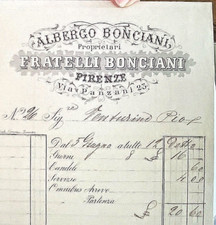 ALBERGO BONCIANI
Proprietari
FRATELLI BONCIANI
FIRENZE
Via Panzani 23
N. 26 Sig. Venturino
Dal 5 Giugno a tutto 12
Giorni £ 16
Candele 60
Servizio 4.00
Omnibus Arrivo
Partenza
£ 20.60